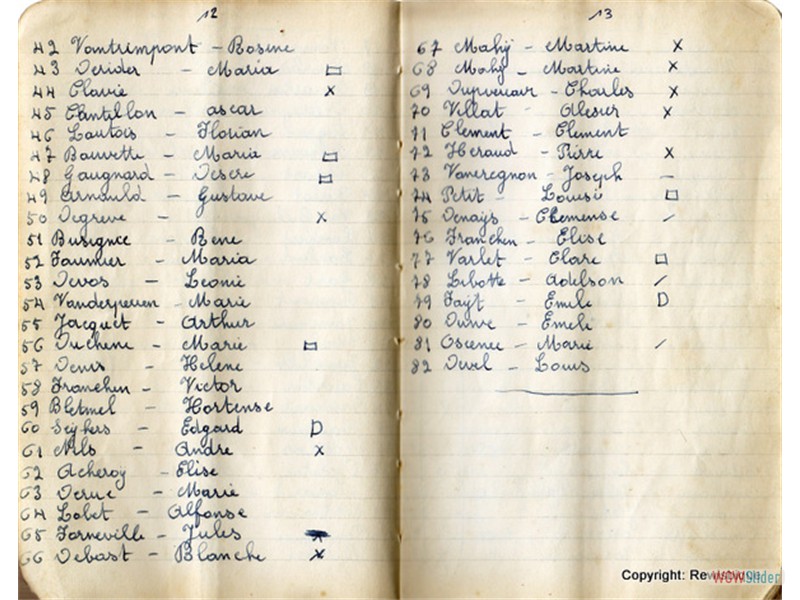 12
42 Vantrimpont - Rosine
43 Derider - Maria
44 Clavie x
45 Chantillon - oscar
46 Lautois - Florian
47 Bauvette - Maria
48 Gaugnard - Desere
49 Arnauld - Gustave
50 Degreve - x
51 Busignce - Rene
52 Faumier - Maria
53 Devos - Leonie
54 - Marie
55 Jacquet - Arthur
56 Duchene - Marie
57 Denis - Helene
58 Franchen - Victor
59 Bletmel - Hortense
60 Seghers - Edgard D
61 Nils - Andre x
62 Acheroy - Elise
63 Deruc - Marie
64 Lobet - Alfonse
65 Forneville - Jules
66 Debast - Blanche x
13
67 Mahÿ - Martine x
68 Mahÿ - Martine x
69 - Charles x
70 Villat - Olesier x
71 Clement - Clement
72 Heraud - Pierre x
73 Vaneregnon - Joseph -
74 Petit - Louise
75 Denays - Clemense /
76 Franchen - Elise
77 Varlet - Clare
78 Libotte - Adelson /
79 Faÿt - Emile D
80 - Emele
81 Oscenec - Marie /
82 Devel - Louis
Copyright: Re
wowslider